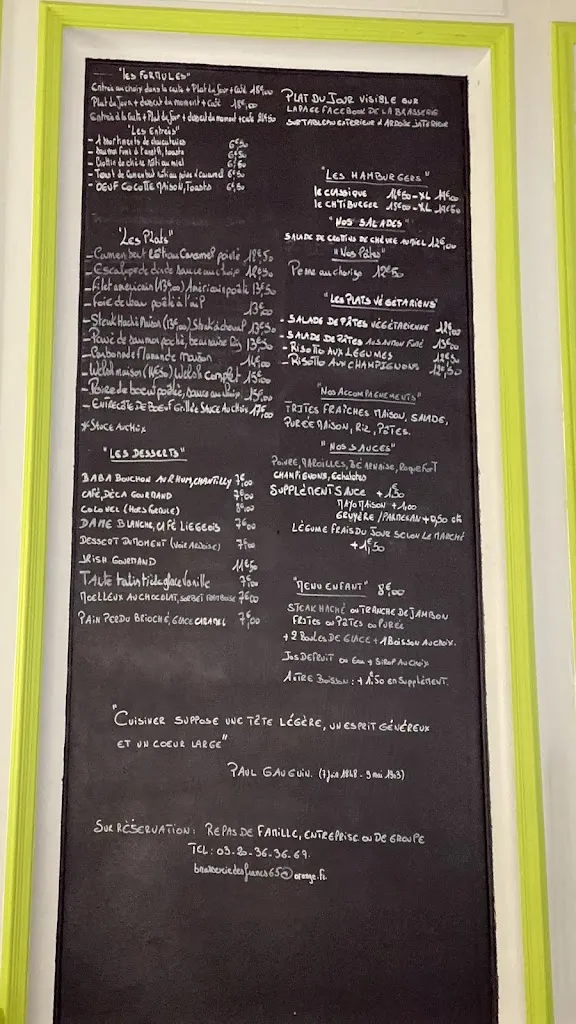 "Les FORMULES"
Entrée au choix dans la carte + Plat du Jour + Café
Plat du Jour + dessert du moment + café 18€,00
Entrée à la carte + Plat du Jour + dessert du moment + café
"Les Entrées"
- Assortiments de charcuteries 6€50
- toasts 6€50
- Crottin de chèvre rôti au miel 6€50
- Toast de Camembert rôti au poivre & caramel 6€50
- OEUF COCOTTE MAISON, Toasts 6€50
"Les Plats"
- Camembert rôti au Caramel poivré
- Escalope de dinde sauce au choix 12€50
- Filet américain (13€00) Américain poêlé 13€50
- Foie de veau poêlé à l'ail 13€00
- Steak Haché Maison (13€00) Steak à cheval 13€50
- Pavé de saumon poêlé, 13€50
- Carbonade Flamande maison 14€00
- Welsh maison (14€50) Welsh complet 15€00
- Poire de boeuf poêlée, sauce au choix 15€00
- ENTRECÔTE DE BOEUF Grillée SAUCE AU CHOIX 17€00
* SAUCE AU CHOIX
"LES DESSERTS"
BABA BOUCHON AU RHUM, CHANTILLY 7€00
CAFÉ, DÉCA GOURMAND 7€00
COLONEL (HORS GENIUS) 8€00
DAME BLANCHE, CAFÉ LIEGEOIS 7€00
DESSERT DU MOMENT (VOIR ARDOISE) 7€00
IRISH GOURMAND 11€50
TARTE tatin tiède glace Vanille 7€00
MOELLEUX AU CHOCOLAT, SORBET FRAMBOISE 7€00
PAIN PERDU BRIOCHÉ, GLACE CARAMEL 7€00
PLAT DU JOUR VISIBLE SUR
LA PAGE FACEBOOK DE LA BRASSERIE
SUR TABLEAU EXTERIEUR & ARDOISE INTERIEUR
"LES HAMBURGERS"
le CLASSIQUE 14€50 - XL
le CH'TIBURGER 15€00 - XL
"NOS SALADES"
SALADE DE CROTTINS DE CHÈVRE AU MIEL 12€,00
"Nos Pâtes"
Penne au chorizo 12€50
"LES PLATS VÉGÉTARIENS"
- SALADE DE PÂTES VÉGÉTARIENNE 12€00
- SALADE DE PÂTES AU SAUMON FUMÉ 13€00
- RISOTTO AUX LÉGUMES 12€50
- RISOTTO AUX CHAMPIGNONS 12€,50
"NOS ACCOMPAGNEMENTS"
FRITES FRAÎCHES MAISON, SALADE,
PURÉE MAISON, RIZ, PÂTES.
"NOS SAUCES"
POIVRE, MAROILLES, BÉARNAISE, Roquefort
CHAMPIGNONS, Echalotes
SUPPLÉMENT SAUCE + 1€50
MAYO MAISON + 1,00
GRUYÈRE / PARMESAN + 0,50 cts
LÉGUME FRAIS DU JOUR SELON LE MARCHÉ
+ 1€,50
"MENU ENFANT" 8€00
STEAK HACHÉ ou TRANCHE DE JAMBON
FRITES ou PÂTES ou PURÉE
+ 2 BOULES DE GLACE + 1 BOISSON AU CHOIX.
JUS DE FRUIT ou Eau + SIROP AU CHOIX
AUTRE BOISSON : + 1€,50 en Supplément.
"CUISINER SUPPOSE UNE TÊTE LÉGÈRE, UN ESPRIT GÉNÉREUX
ET UN COEUR LARGE"
PAUL GAUGUIN. (7 juin 1848 - 9 mai 1903)
SUR RÉSERVATION : REPAS DE FAMILLE, ENTREPRISE OU DE GROUPE
TEL : 03-20-36-36-69.
brasseriedesfrancs65@orange.fr.